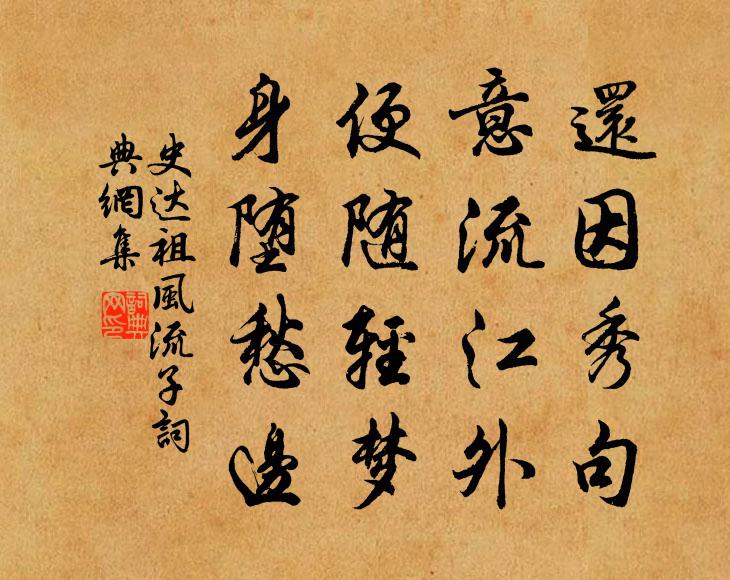 還因秀句
意流江外
便随輕梦
身堕愁邊
史达祖風流子詞
典網集
詞典网印